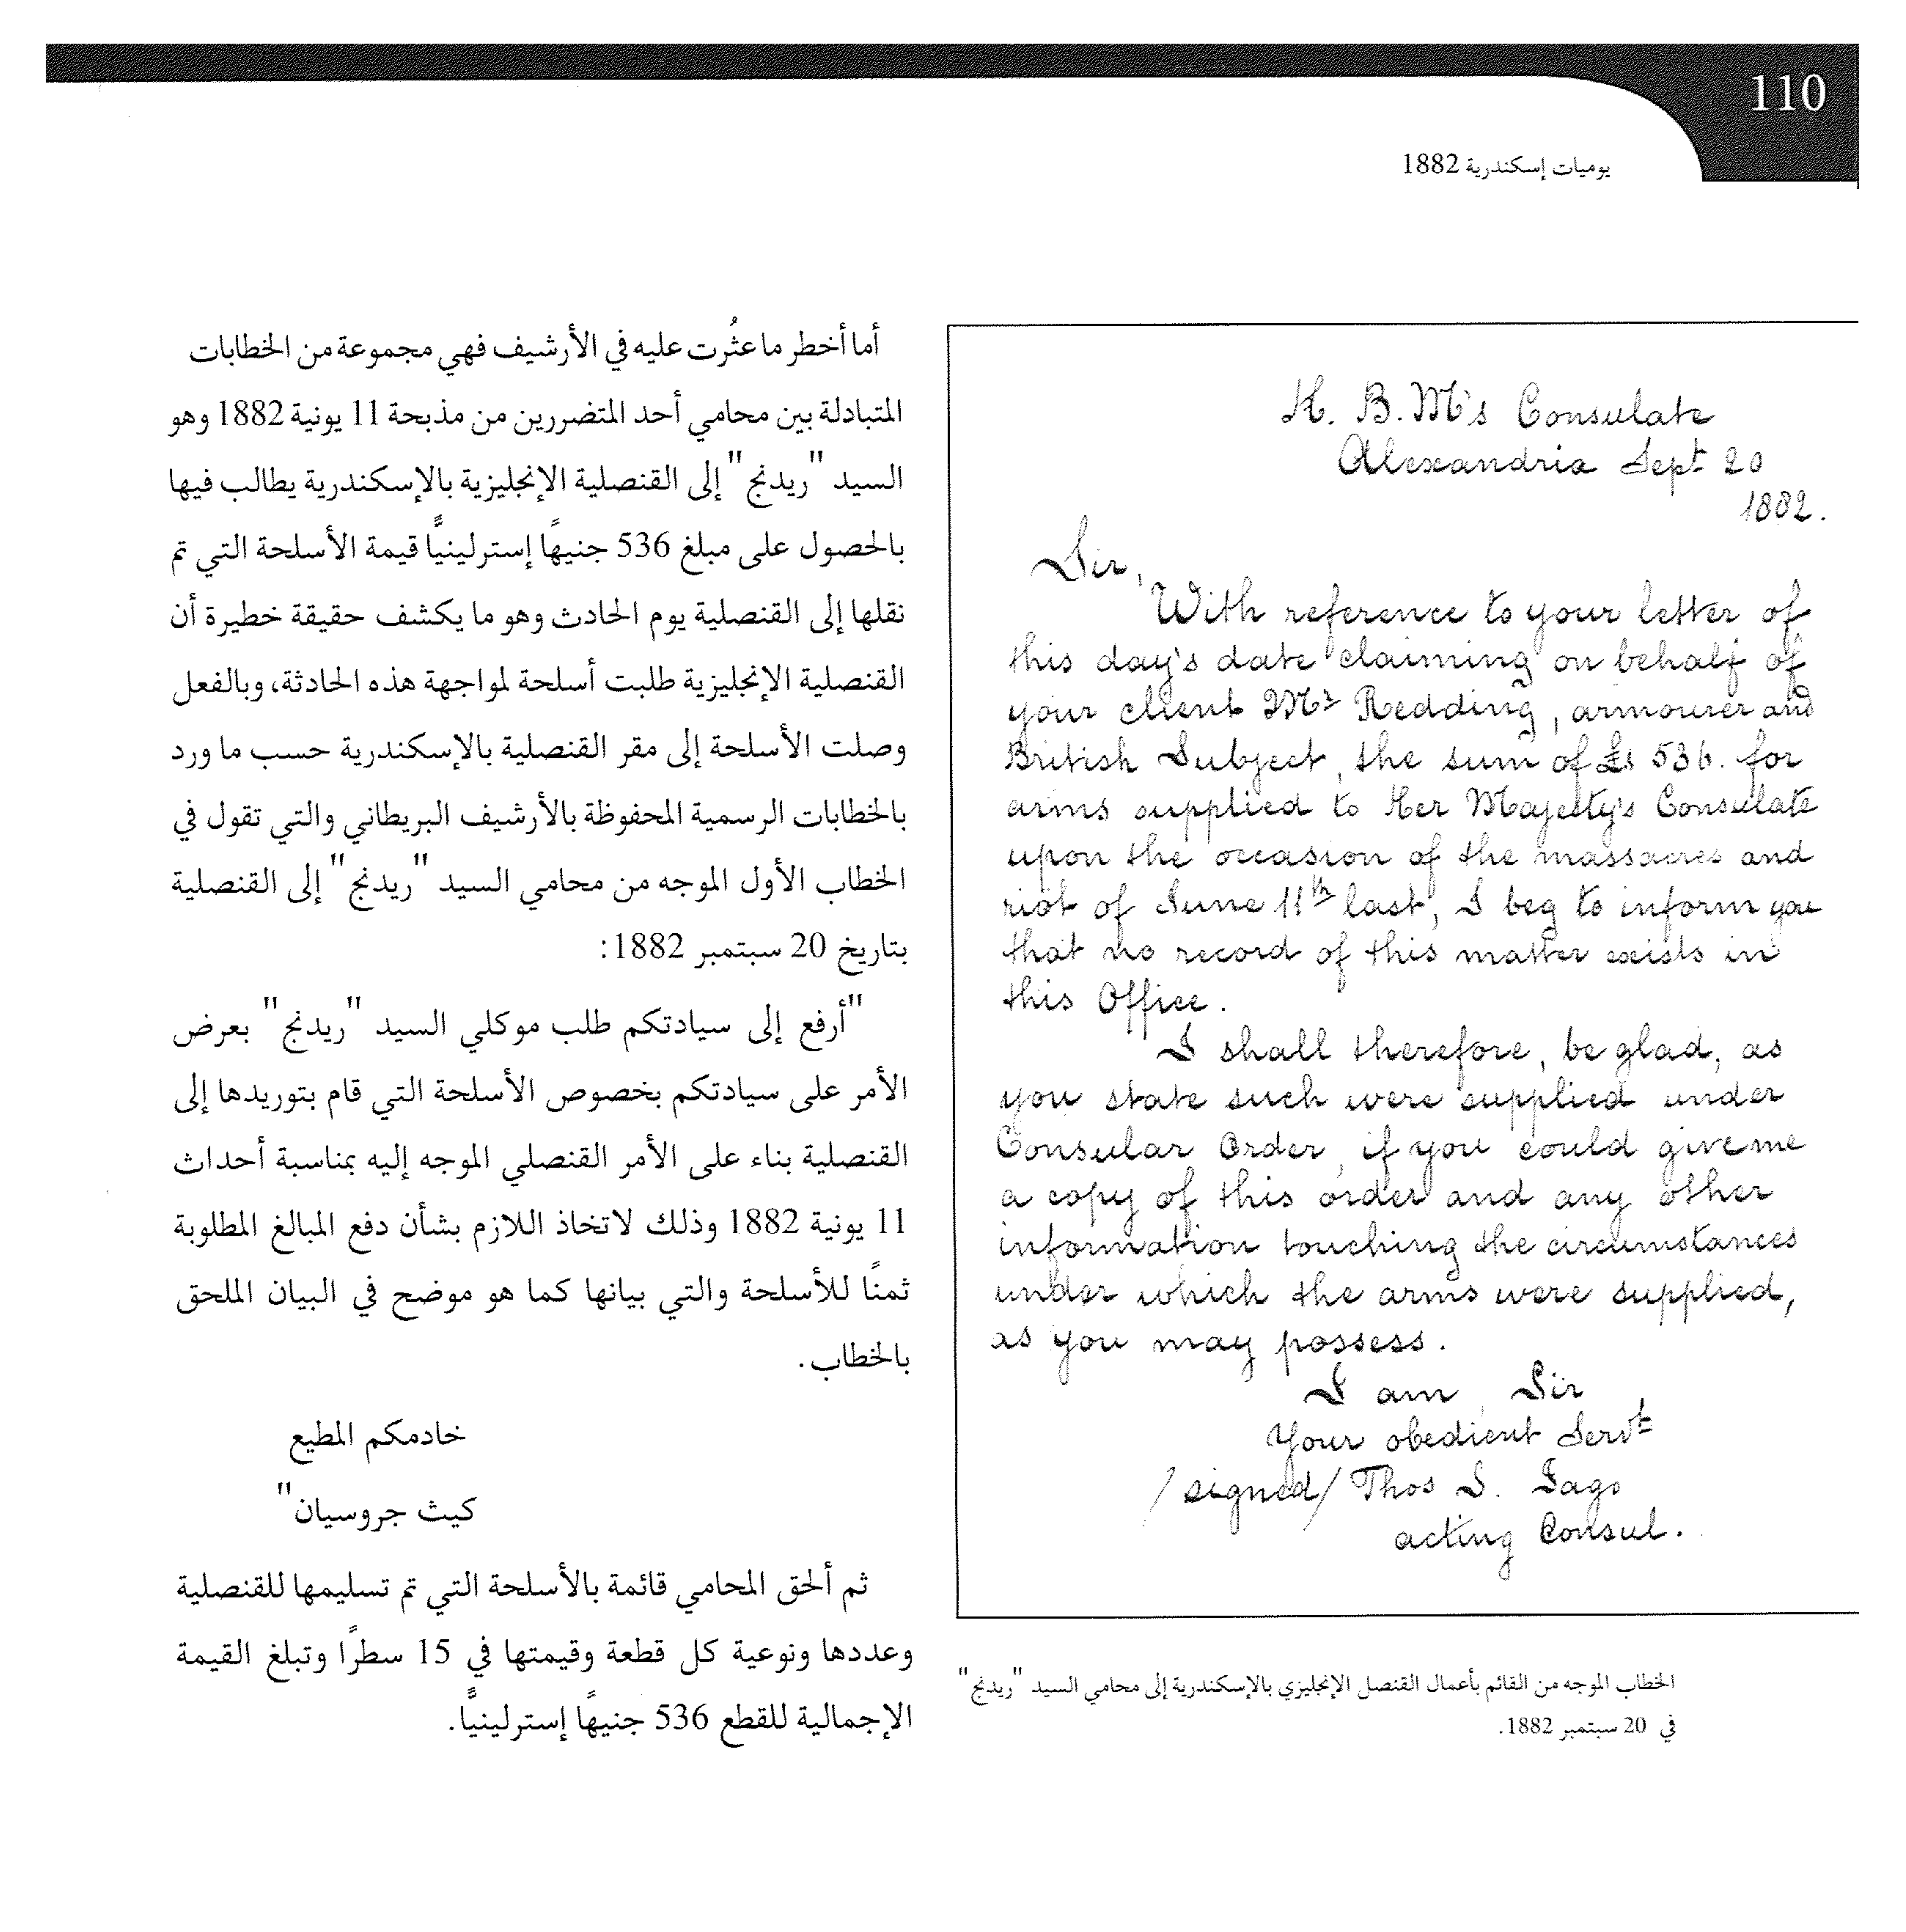 110
يوميات إسكندرية 1882
H. B. M's Consulate
Alexandria Sept 20
1882.
Sir,
With reference to your letter of
this day's date claiming on behalf of
your client Mr Redding, armourer and
British Subject, the sum of £s 536. for
arms supplied to Her Majesty's Consulate
upon the occasion of the massacres and
riot of June 11th last, I beg to inform you
that no record of this matter exists in
this Office.
I shall therefore, be glad, as
you state such were supplied under
Consular Order, if you could give me
a copy of this order and any other
information touching the circumstances
under which the arms were supplied,
as you may possess.
I am, Sir
Your obedient Servt
/signed/ Thos S. Jago
acting Consul.
الخطاب الموجه من القائم بأعمال القنصل الإنجليزي بالإسكندرية إلى محامي السيد "ريدنج"
في 20 سبتمبر 1882.
أما أخطر ما عثُرت عليه في الأرشيف فهي مجموعة من الخطابات
المتبادلة بين محامي أحد المتضررين من مذبحة 11 يونية 1882 وهو
السيد "ريدنج" إلى القنصلية الإنجليزية بالإسكندرية يطالب فيها
بالحصول على مبلغ 536 جنيهًا إسترلينيًّا قيمة الأسلحة التي تم
نقلها إلى القنصلية يوم الحادث وهو ما يكشف حقيقة خطيرة أن
القنصلية الإنجليزية طلبت أسلحة لمواجهة هذه الحادثة، وبالفعل
وصلت الأسلحة إلى مقر القنصلية بالإسكندرية حسب ما ورد
بالخطابات الرسمية المحفوظة بالأرشيف البريطاني والتي تقول في
الخطاب الأول الموجه من محامي السيد "ريدنج" إلى القنصلية
بتاريخ 20 سبتمبر 1882:
"أرفع إلى سيادتكم طلب موكلي السيد "ريدنج" بعرض
الأمر على سيادتكم بخصوص الأسلحة التي قام بتوريدها إلى
القنصلية بناء على الأمر القنصلي الموجه إليه بمناسبة أحداث
11 يونية 1882 وذلك لاتخاذ اللازم بشأن دفع المبالغ المطلوبة
ثمنًا للأسلحة والتي بيانها كما هو موضح في البيان الملحق
بالخطاب.
خادمكم المطيع
كيث جروسيان"
ثم ألحق المحامي قائمة بالأسلحة التي تم تسليمها للقنصلية
وعددها ونوعية كل قطعة وقيمتها في 15 سطرًا وتبلغ القيمة
الإجمالية للقطع 536 جنيهًا إسترلينيًّا.